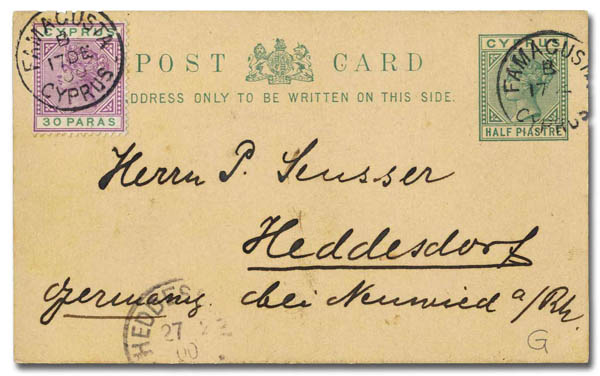 FAMAGUSTA
B
17 DE
CYPRUS
CYPRUS
30 PARAS
POST CARD
ADDRESS ONLY TO BE WRITTEN ON THIS SIDE.
CYPRUS
HALF PIASTRE
FAMAGUSTA
B
17
CYPRUS
Herrn P. Seusser
Heddesdorf
Germany. bei Neuwied a/Rh.
HEDDES
27
00
G